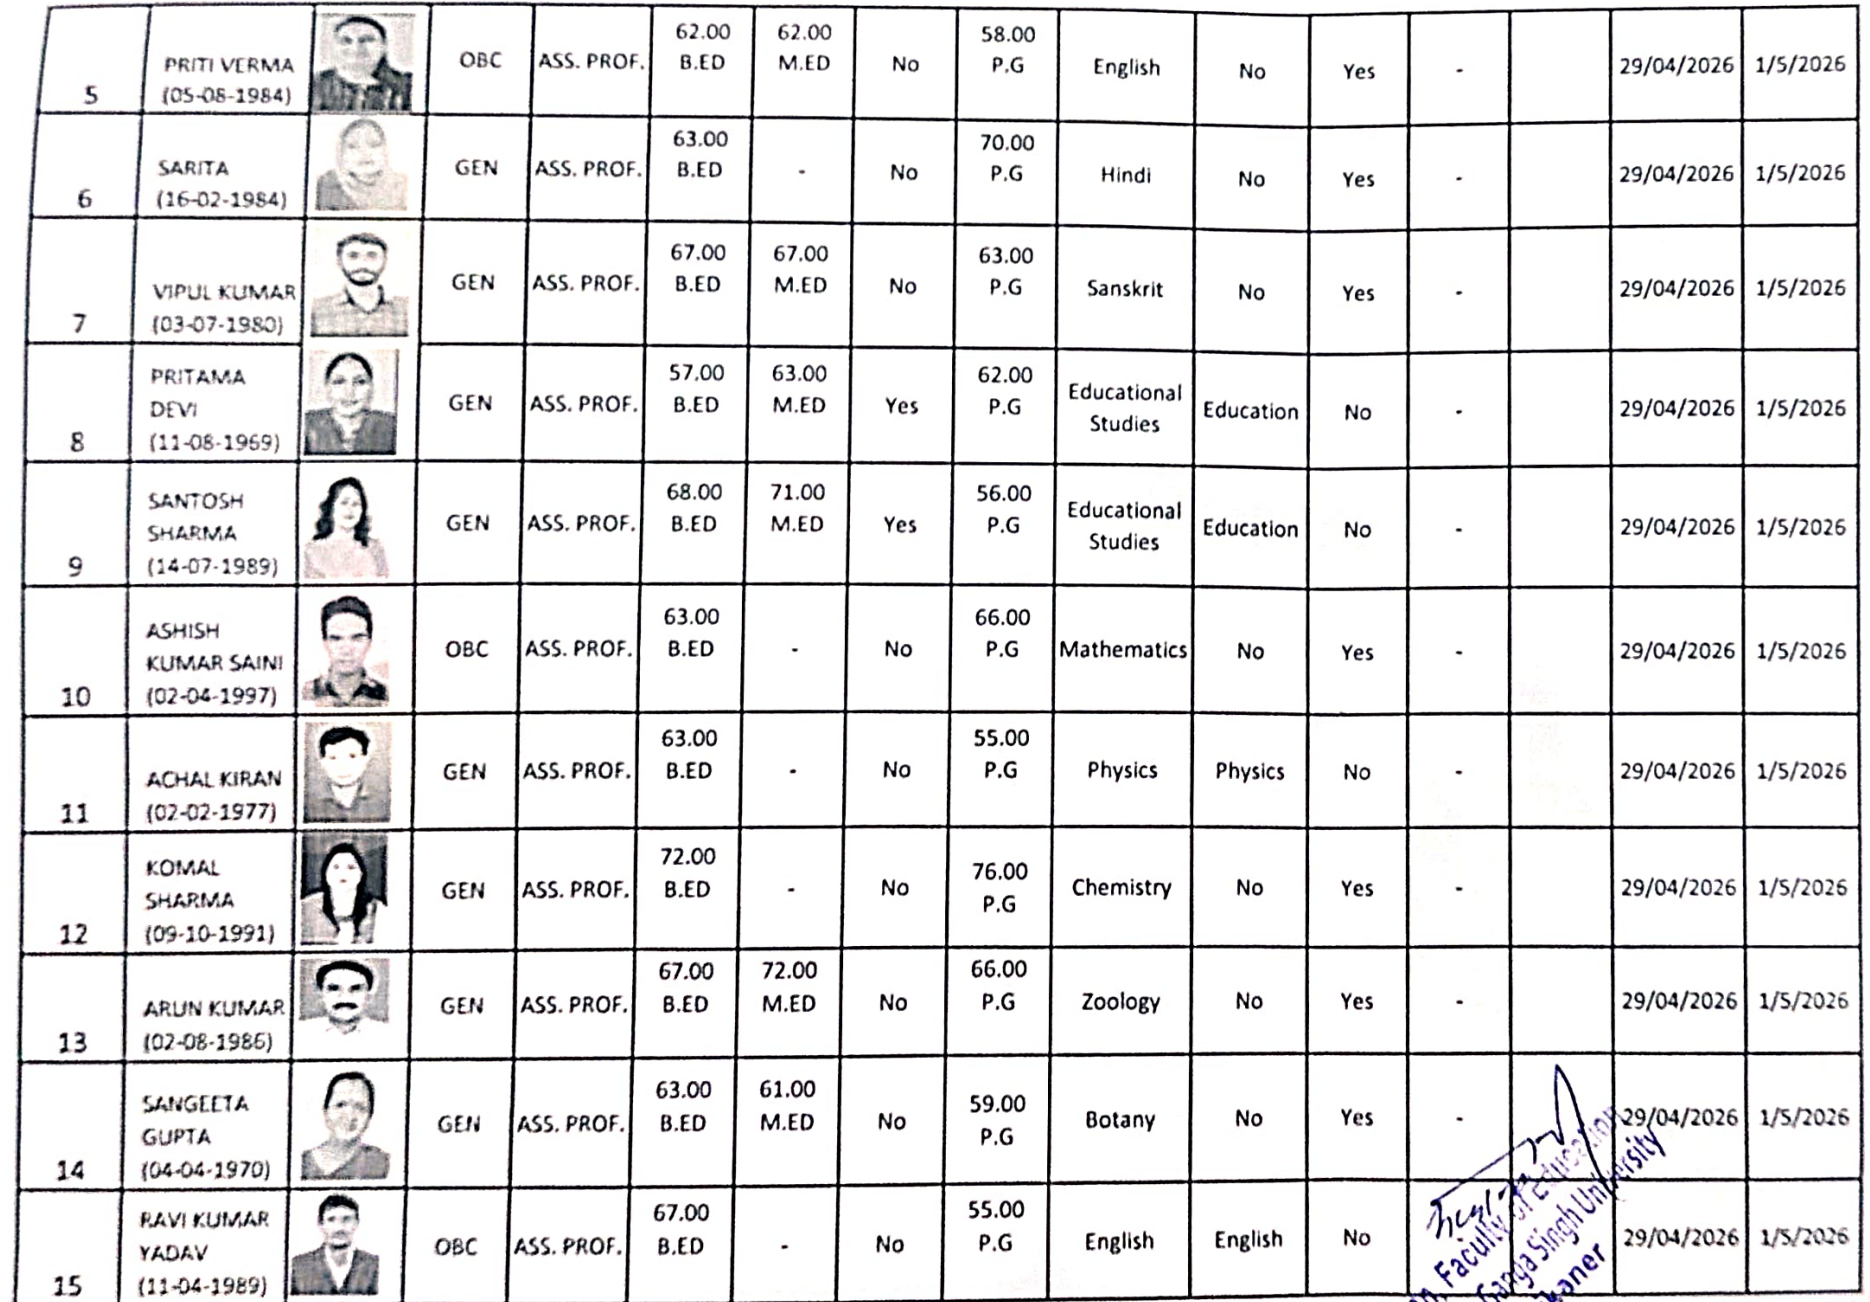 5 PRITI VERMA (05-08-1984) OBC ASS. PROF. 62.00 B.ED 62.00 M.ED No 58.00 P.G English No Yes - 29/04/2026 1/5/2026
6 SARITA (16-02-1984) GEN ASS. PROF. 63.00 B.ED - No 70.00 P.G Hindi No Yes - 29/04/2026 1/5/2026
7 VIPUL KUMAR (03-07-1980) GEN ASS. PROF. 67.00 B.ED 67.00 M.ED No 63.00 P.G Sanskrit No Yes - 29/04/2026 1/5/2026
8 PRITAMA DEVI (11-08-1969) GEN ASS. PROF. 57.00 B.ED 63.00 M.ED Yes 62.00 P.G Educational Studies Education No - 29/04/2026 1/5/2026
9 SANTOSH SHARMA (14-07-1989) GEN ASS. PROF. 68.00 B.ED 71.00 M.ED Yes 56.00 P.G Educational Studies Education No - 29/04/2026 1/5/2026
10 ASHISH KUMAR SAINI (02-04-1997) OBC ASS. PROF. 63.00 B.ED - No 66.00 P.G Mathematics No Yes - 29/04/2026 1/5/2026
11 ACHAL KIRAN (02-02-1977) GEN ASS. PROF. 63.00 B.ED - No 55.00 P.G Physics Physics No - 29/04/2026 1/5/2026
12 KOMAL SHARMA (09-10-1991) GEN ASS. PROF. 72.00 B.ED - No 76.00 P.G Chemistry No Yes - 29/04/2026 1/5/2026
13 ARUN KUMAR (02-08-1986) GEN ASS. PROF. 67.00 B.ED 72.00 M.ED No 66.00 P.G Zoology No Yes - 29/04/2026 1/5/2026
14 SANGEETA GUPTA (04-04-1970) GEN ASS. PROF. 63.00 B.ED 61.00 M.ED No 59.00 P.G Botany No Yes - 29/04/2026 1/5/2026
15 RAVI KUMAR YADAV (11-04-1989) OBC ASS. PROF. 67.00 B.ED - No 55.00 P.G English English No 29/04/2026 1/5/2026
Faculty of Education
Ganga Singh University